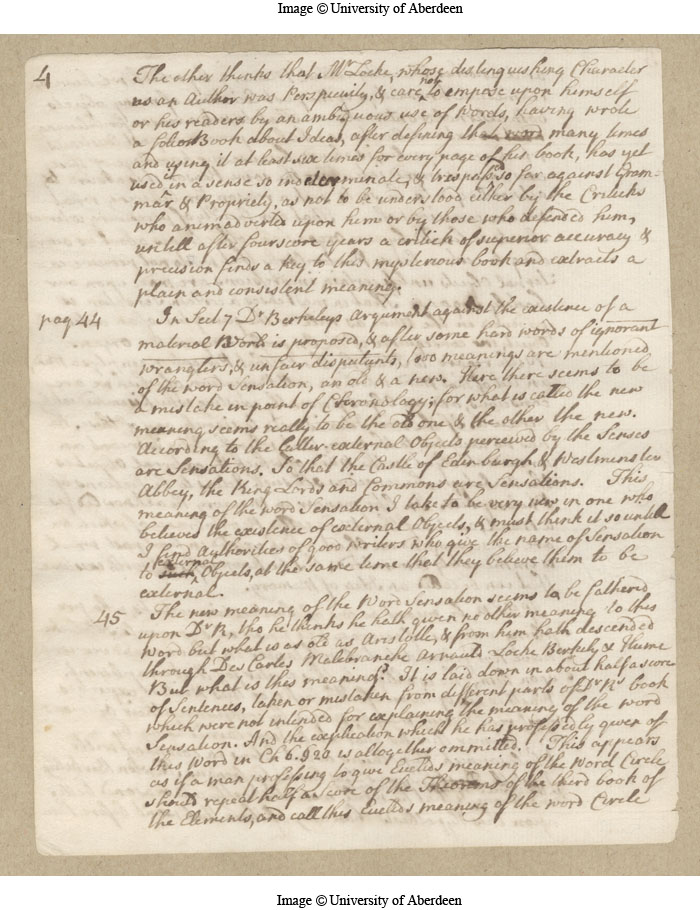 Image © University of Aberdeen
4
The other thinks that Mr Locke, whose distinguishing Character
as an Author was Perspicuity, & care not to empose upon himself
or his readers by an ambiguous use of Words, having wrote
a folio Book about Ideas, after defining that word many times
and using it at least six times for every page of his book, has yet
used it in a sense so indeterminate, & trespassd so far against Gram-
mar & Propriety, as not to be understood either by the Criticks
who animadverted upon him or by those who defended him,
untill after fourscore years a critick of superior accuracy &
precision finds a key to this mysterious book and extracts a
plain and consistent meaning.
pag 44
In Sect 7 Dr Berkeleys Argument against the existence of a
material World is proposed, & after some hard words of ignorant
wranglers, & unfair disputants, two meanings are mentioned
of the word Sensation, an old & a new. Here there seems to be
a mistake in point of Chronology; for what is called the new
meaning seems really to be the old one & the other the new.
According to the latter external Objects perceived by the Senses
are Sensations. So that the Castle of Edinburgh & Westminster
Abbey, the King Lords and Commons are Sensations. This
meaning of the word Sensation I take to be very new in one who
believes the existence of external Objects, & must think it so untill
I find Authorities of good writers who give the name of Sensation
to such external Objects, at the same time that they believe them to be
external.
45
The new meaning of the Word Sensation seems to be fathered
upon Dr R, tho he thinks he hath given no other meaning to this
word but what is as old as Aristotle, & from him hath descended
through Des Cartes Malebranche Arnauld Locke Berkely & Hume
But what is this meaning? It is laid down in about half a score
of Sentences, taken or mistaken from different parts of Dr Rs book
which were not intended for explaining the meaning of the word
Sensation. And the explication which he has professedly given of
this Word in Ch 6. § 20 is altogether ommitted. This appears
as if a man professing to give Euclids meaning of the Word Circle
should repeat half a score of the Theorems of the third book of
the Elements, and call this Euclids meaning of the word Circle
Image © University of Aberdeen